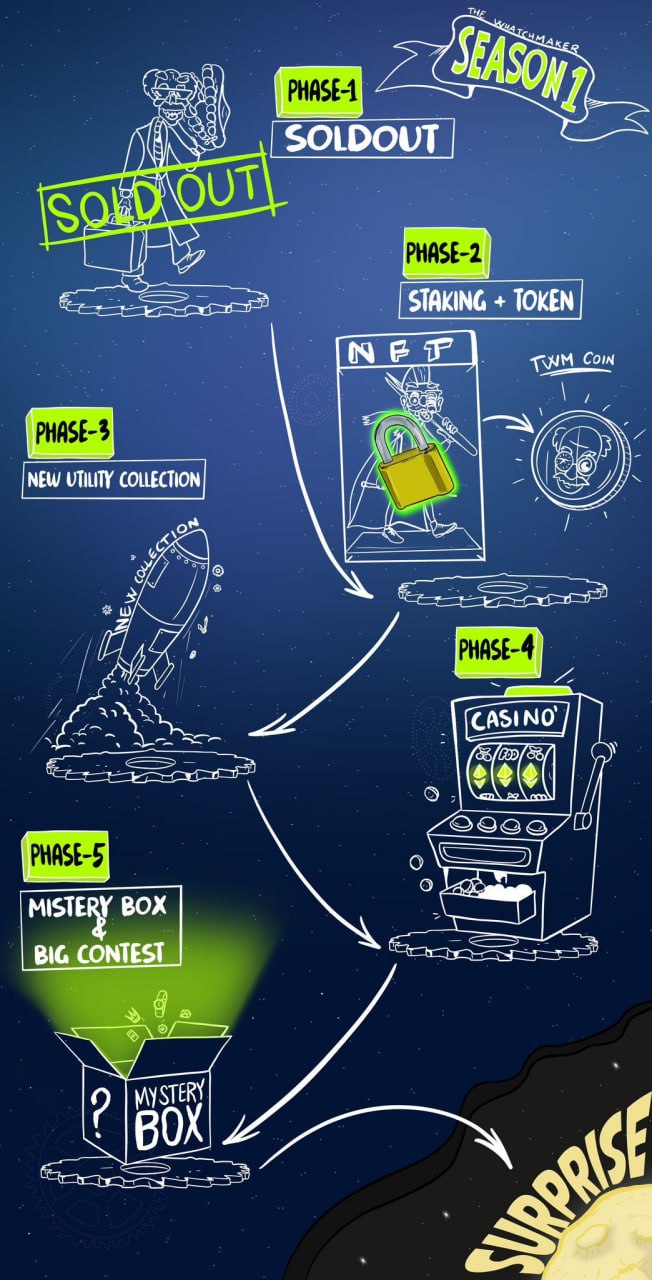 THE WHATCHMAKER
SEASON 1
PHASE-1
SOLDOUT
SOLD OUT
PHASE-2
STAKING + TOKEN
NFT
TWM COIN
PHASE-3
NEW UTILITY COLLECTION
NEW COLLECTION
PHASE-4
CASINO'
PHASE-5
MISTERY BOX
&
BIG CONTEST
?
MYSTERY
BOX
SURPRISE